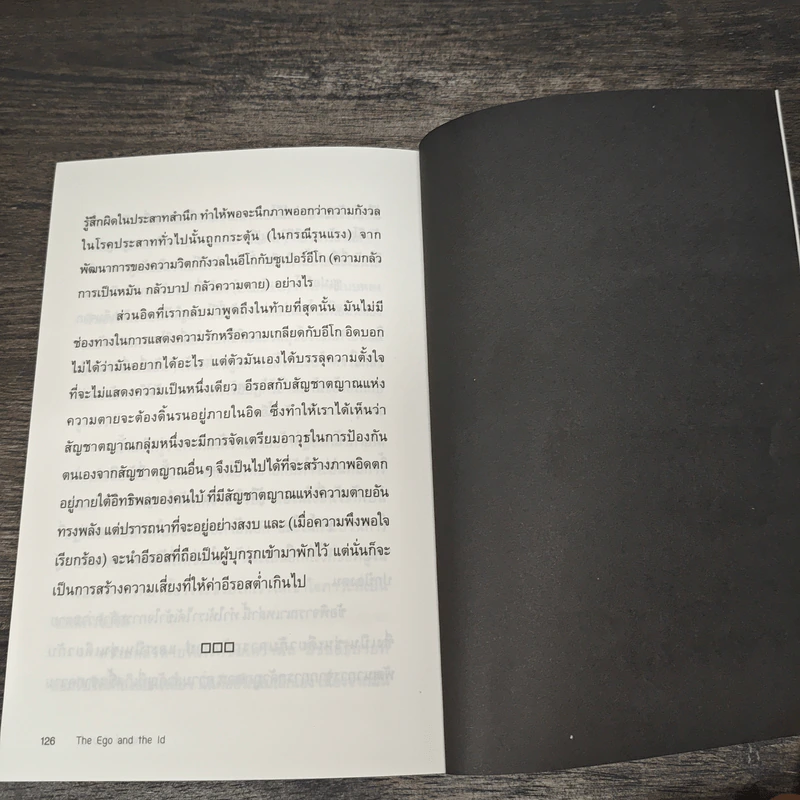 รู้สึกผิดในประสาทสำนึก ทำให้พอจะนึกภาพออกว่าความกังวล
ในโรคประสาททั่วไปนั้นถูกกระตุ้น (ในกรณีรุนแรง) จาก
พัฒนาการของความวิตกกังวลในอีโกกับซูเปอร์อีโก (ความกลัว
การเป็นหมัน กลัวบาป กลัวความตาย) อย่างไร
ส่วนอิดที่เรากลับมาพูดถึงในท้ายที่สุดนั้น มันไม่มี
ช่องทางในการแสดงความรักหรือความเกลียดกับอีโก อิดบอก
ไม่ได้ว่ามันอยากได้อะไร แต่ตัวมันเองได้บรรลุความตั้งใจ
ที่จะไม่แสดงความเป็นหนึ่งเดียว อีรอสกับสัญชาตญาณแห่ง
ความตายจะต้องดิ้นรนอยู่ภายในอิด ซึ่งทำให้เราได้เห็นว่า
สัญชาตญาณกลุ่มหนึ่งจะมีการจัดเตรียมอาวุธในการป้องกัน
ตนเองจากสัญชาตญาณอื่นๆ จึงเป็นไปได้ที่จะสร้างภาพอิดตก
อยู่ภายใต้อิทธิพลของคนใบ้ ที่มีสัญชาตญาณแห่งความตายอัน
ทรงพลัง แต่ปรารถนาที่จะอยู่อย่างสงบ และ (เมื่อความพึงพอใจ
เรียกร้อง) จะนำอีรอสที่ถือเป็นผู้บุกรุกเข้ามาพักไว้ แต่นั่นก็จะ
เป็นการสร้างความเสี่ยงที่ให้ค่าอีรอสต่ำเกินไป
126 The Ego and the Id